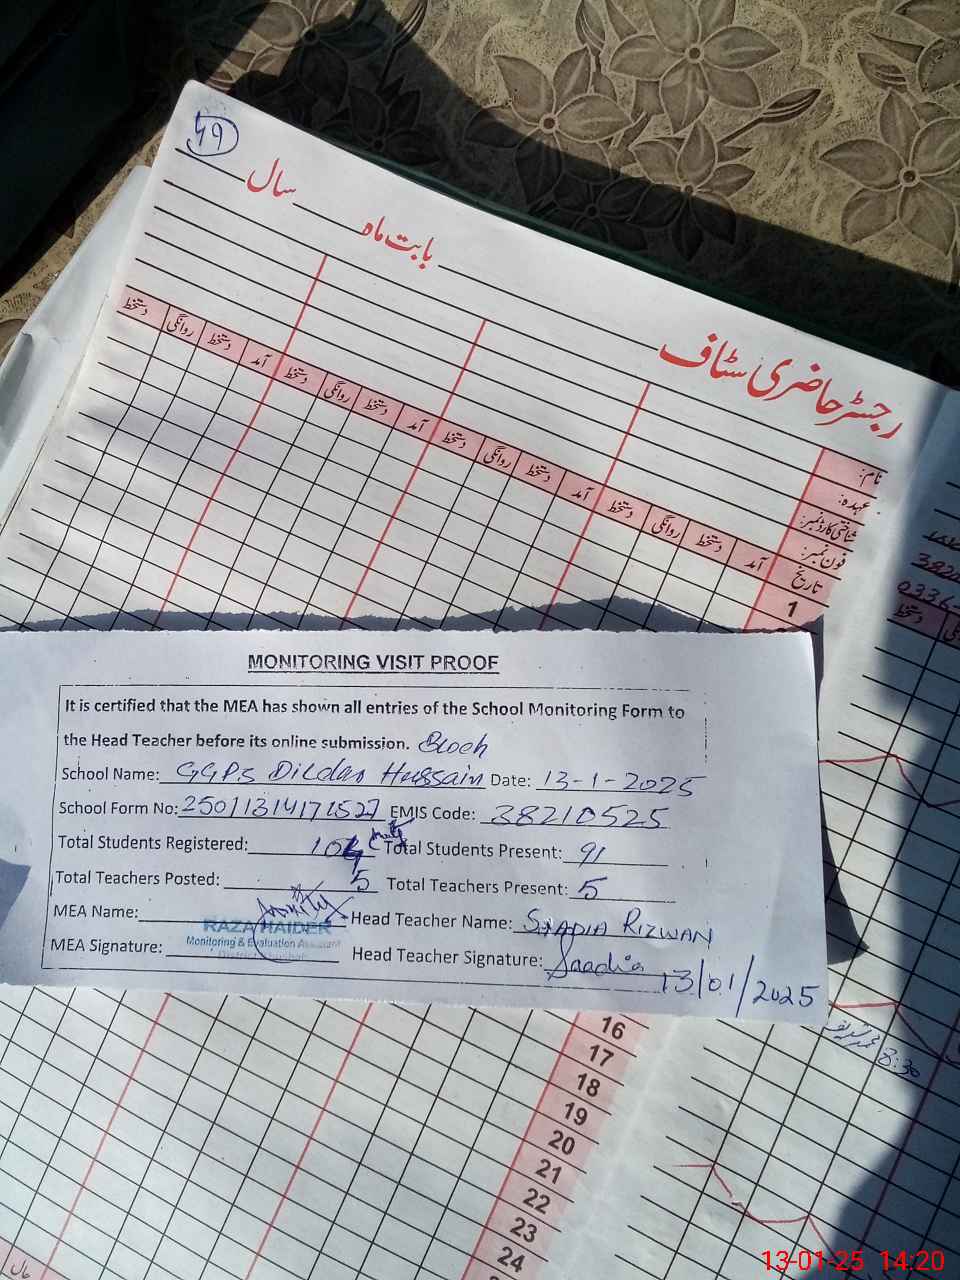 49
سال
بابت ماہ
رجسٹر حاضری سٹاف
نام:
عہدہ:
شناختی کارڈ نمبر:
فون نمبر:
تاریخ آمد دستخط روانگی دستخط آمد دستخط روانگی دستخط آمد دستخط روانگی دستخط آمد دستخط روانگی دستخط
1
0336-
دستخط
MONITORING VISIT PROOF
It is certified that the MEA has shown all entries of the School Monitoring Form to
the Head Teacher before its online submission. Bloch
School Name: GGPS Dildar Hussain Date: 13-1-2025
School Form No: EMIS Code: 38210525
Total Students Registered: Total Students Present: 91
Total Teachers Posted: 5 Total Teachers Present: 5
MEA Name: RAZA HAIDER Head Teacher Name: SAADIA RIZWAN
Monitoring & Evaluation Assistant
MEA Signature: Head Teacher Signature: Saadia 13/01/2025
8:30
16
17
18
19
20
21
22
23
24
13-01-25 14:20